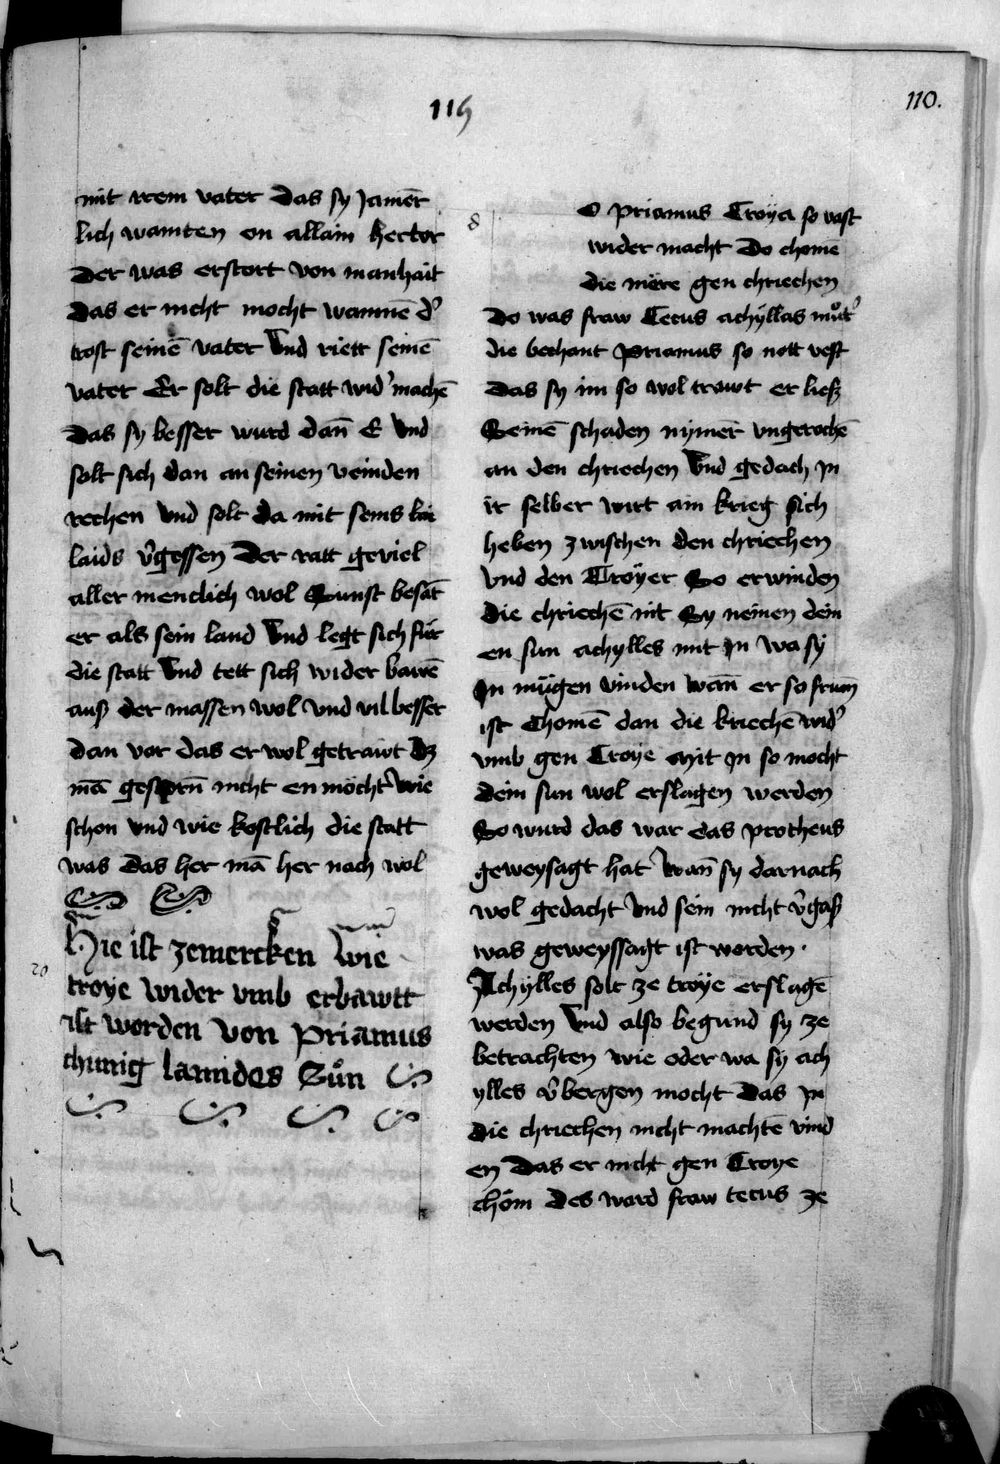 115
110.
mit irem vater Das sy Jamer̄
lich wainten on allain hector
Der was erstort von manhait
Das er nicht mocht wainnē d'
trost seinē vater Vnd riett seinē
vater Er solt die statt wid' machē
Das sy besser wurd dan̄ E Vnd
solt sich dan an seinen veinden
rechen vnd solt da mit seins lai
laids v̄gessen Der ratt geviel
aller menclich wol Sunst besāt
er als sein land Vnd legt sich für
die statt Vnd tett sich wider bawē
auß der massen wol Vnd vil besser
dan vor das er wol getrawt Dz
mā gestorn̄ nicht en möcht Wie
schon vnd wie kostlich die statt
was das her mā her nach wol
Hie ist zemercken wie
troye wider vmb erbawtt
ist worden von Priamus
chunig lamidos Sůn
20
8
O priamus Troÿa so vast
wider macht Do chomē
die märe gen chriechen
Do was fraw Tetus achÿllas můt'
die bechant Priamus so nott vest
Das sy im so wol trawt er ließ
Seinē schaden nymer̄ vngerochē
an den chriechen Vnd gedach In
ir selber wirt ain krieg sich
heben zwischen den chriechen
vnd den Troÿer So erwinden
die chriechē nit Sy nemen dein
en sun achylles mit In wa sÿ
In mügen vinden wan̄ er so frum
ist Chomē dan die krieche wid'
vmb gen Troÿe mit In so mocht
dein sun wol erslagen werden
So wurd das war das protheus
geweysagt hat Wan̄ sy darnach
wol gedacht Vnd sein nicht v̄gaß
was geweyssagt ist worden ·
Achylles solt ze troÿe erslagē
werden Vnd also begund sy ze
betrachten wie oder wa sy ach
ylles v̄bergen mocht Das In
Die chriechen nicht machtē vind
en Das er nicht gen Troye
chom Des ward fraw tetus ze